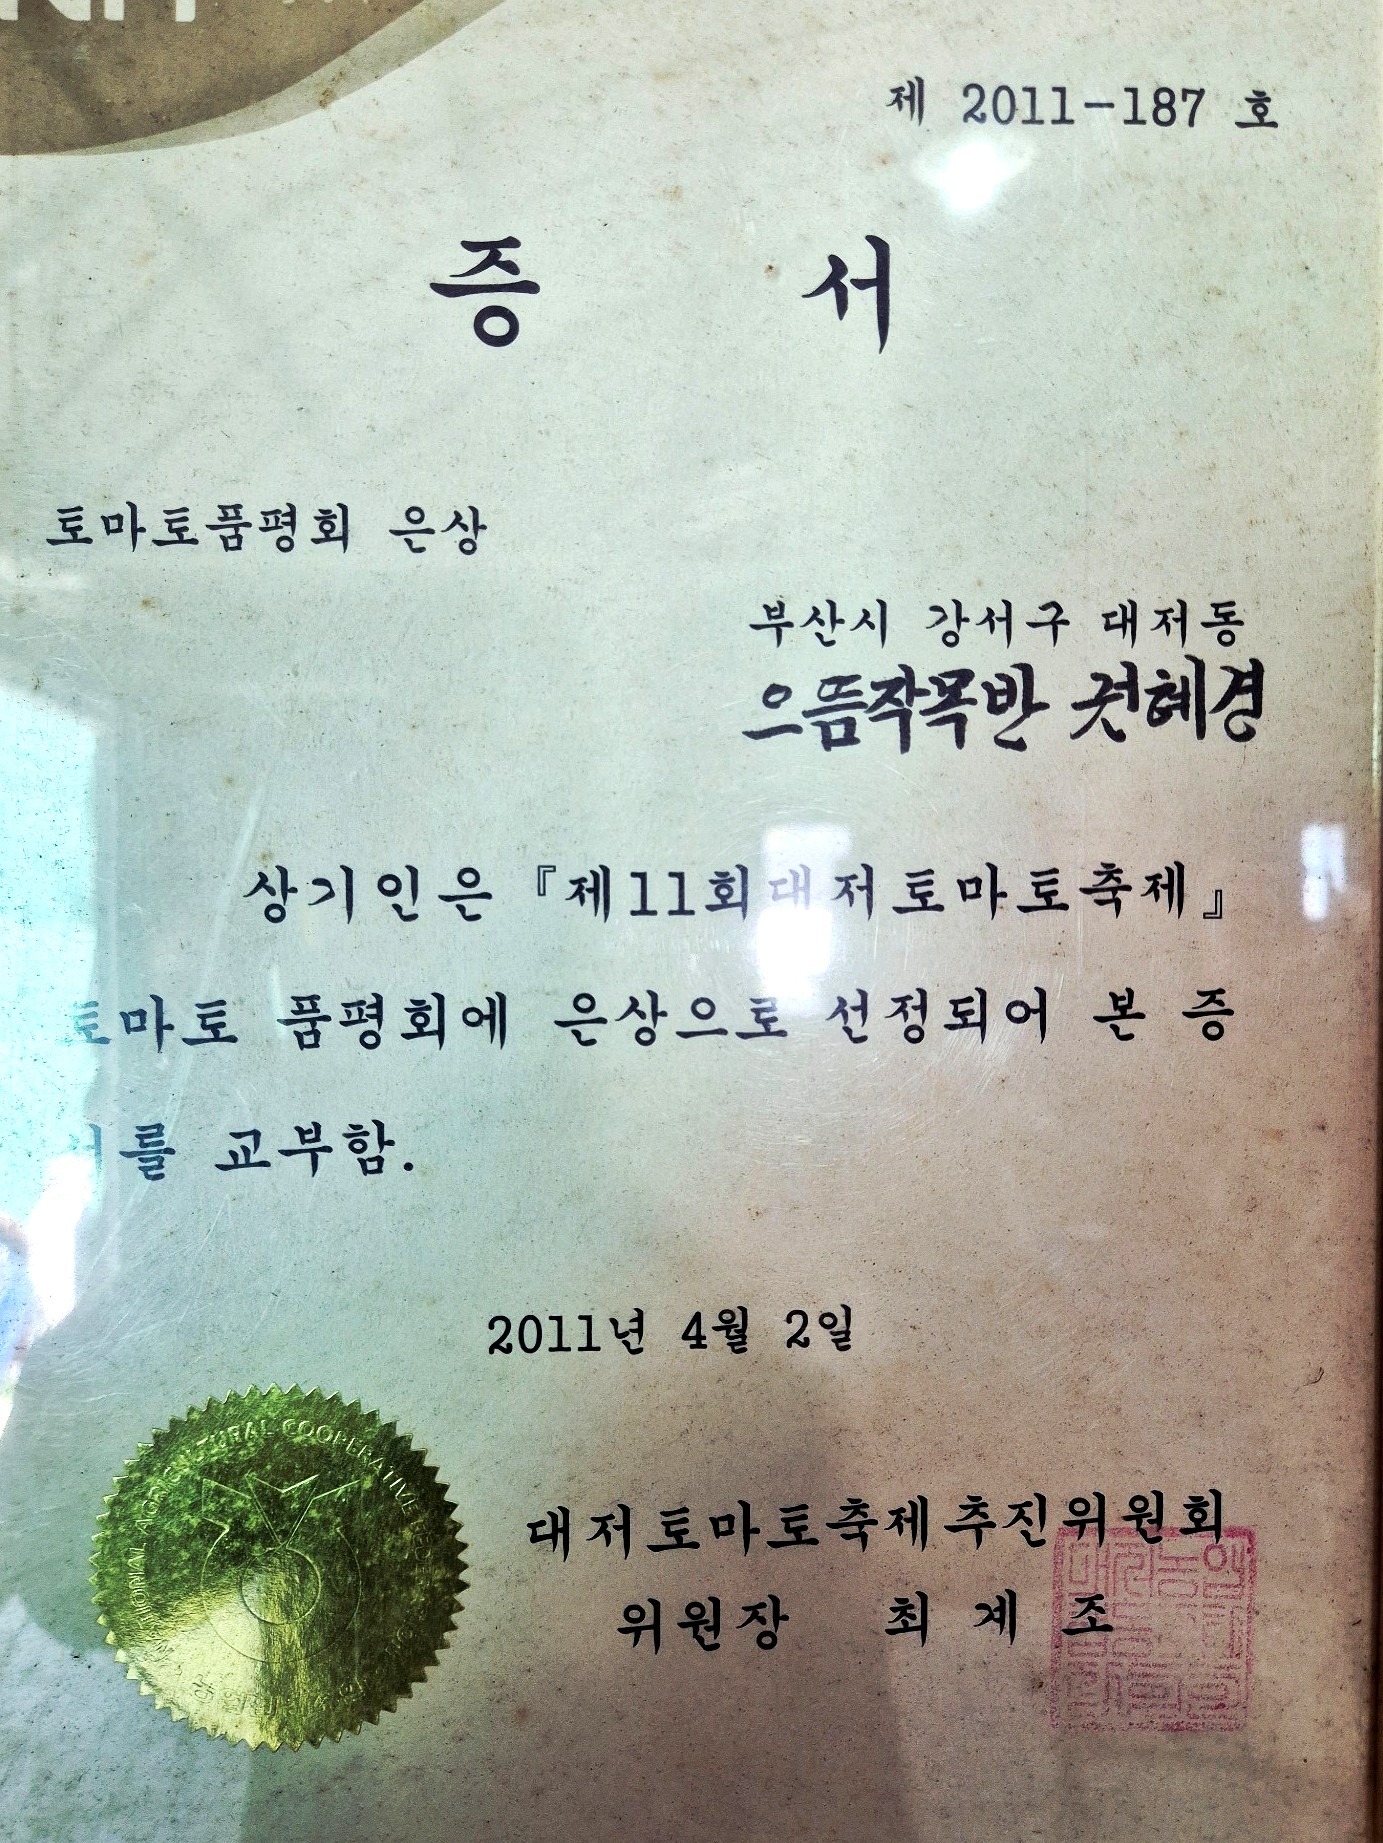 제 2011-187 호
증 서
토마토품평회 은상
부산시 강서구 대저동
으뜸작목반 권혜경
상기인은 『제11회대저토마토축제』
토마토 품평회에 은상으로 선정되어 본 증
서를 교부함.
2011년 4월 2일
대저토마토축제추진위원회
위원장 최 계 조
AGRICULTURAL COOPERATIVE